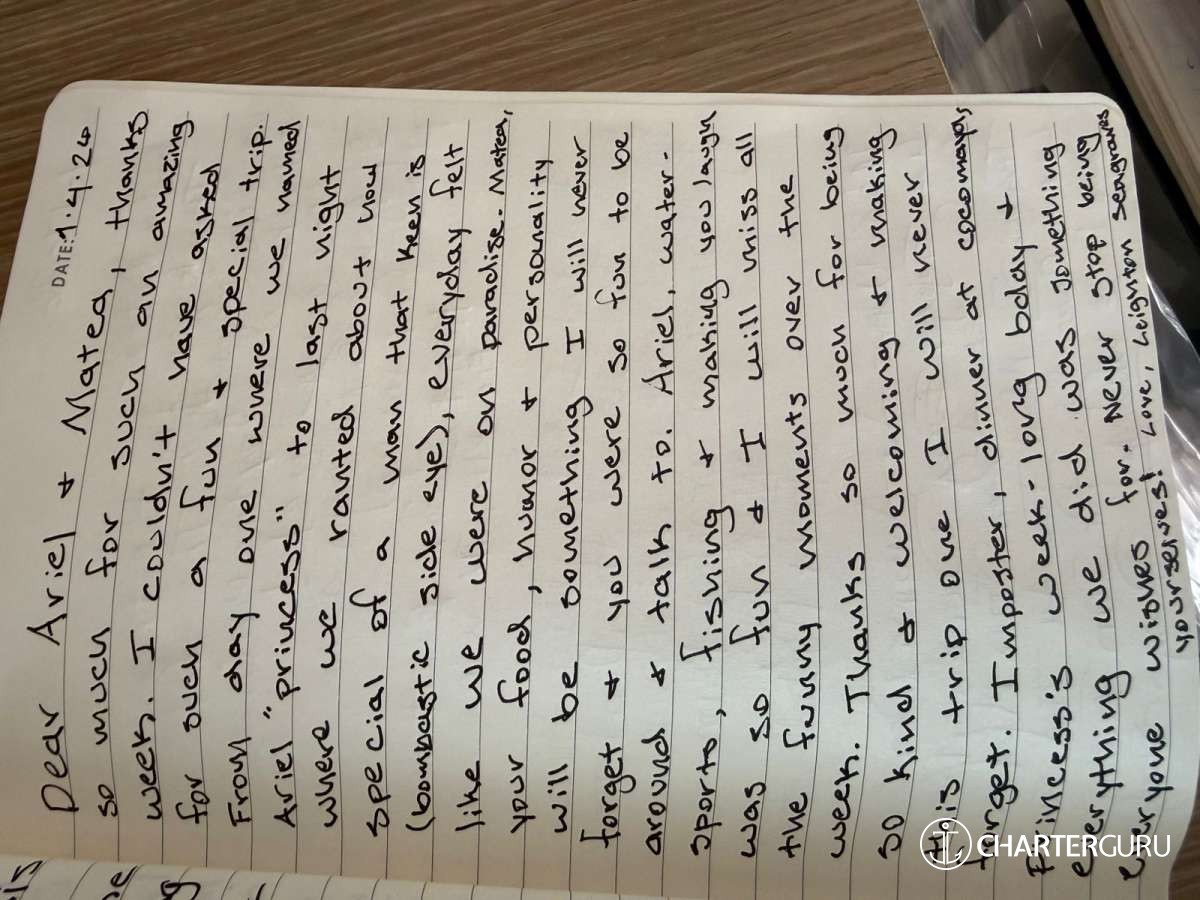 DATE: 1.4.24
Dear Ariel + Matea, thanks
so much for such an amazing
week. I couldn't have asked
for such a fun + special trip.
From day one where we named
Ariel "princess" to last night
where we ranted about how
special of a man that Keen is
(bombastic side eye), everyday felt
like we were on paradise. Matea,
your food, humor + personality
will be something I will never
forget + you were so fun to be
around + talk to. Ariel, water-
sports, fishing + making you laugh
was so fun + I will miss all
the funny moments over the
week. Thanks so much for being
so kind + welcoming + making
this trip one I will never
forget. Imposter, dinner at cocomaya,
Princess's week-long bday +
everything we did was something
everyone wishes for. Never stop being
yourselves! Love, Leighton Seagraves
CHARTERGURU